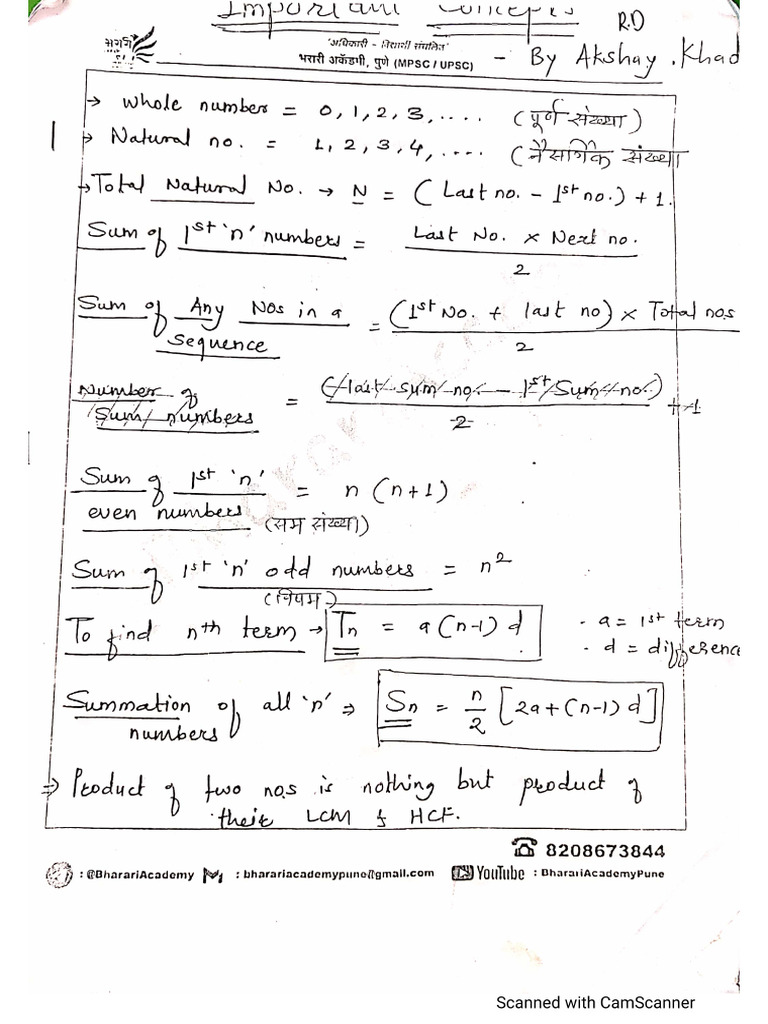 Important Concepts R.D
भरारी 'अधिकारी - निवासी संचलित'
भरारी अकॅडमी, पुणे (MPSC / UPSC) - By Akshay . Khad
→ Whole number = 0, 1, 2, 3, .... (पूर्ण संख्या)
1 → Natural no. = 1, 2, 3, 4, .... (नैसर्गिक संख्या
→ Total Natural No. → N = (Last no. - 1st no.) + 1.
Sum of 1st 'n' numbers = Last No. × Next no.
2
Sum of Any Nos in a = (1st No. + last no) × Total nos
Sequence 2
Number of = (last sum no. - 1st Sum no.) + 1
Sum numbers 2
Sum of 1st 'n' = n (n+1)
even numbers (सम संख्या)
Sum of 1st 'n' odd numbers = n²
(विषम)
To find nth term → Tn = a (n-1) d · a = 1st term
- d = difference
Summation of all 'n' ⇒ Sn = n/2 [2a + (n-1) d]
numbers
⇒ Product of two nos is nothing but product of
their LCM & HCF.
☎ 8208673844
: @BharariAcademy : bharariacademypune@gmail.com YouTube : BharariAcademyPune
Scanned with CamScanner